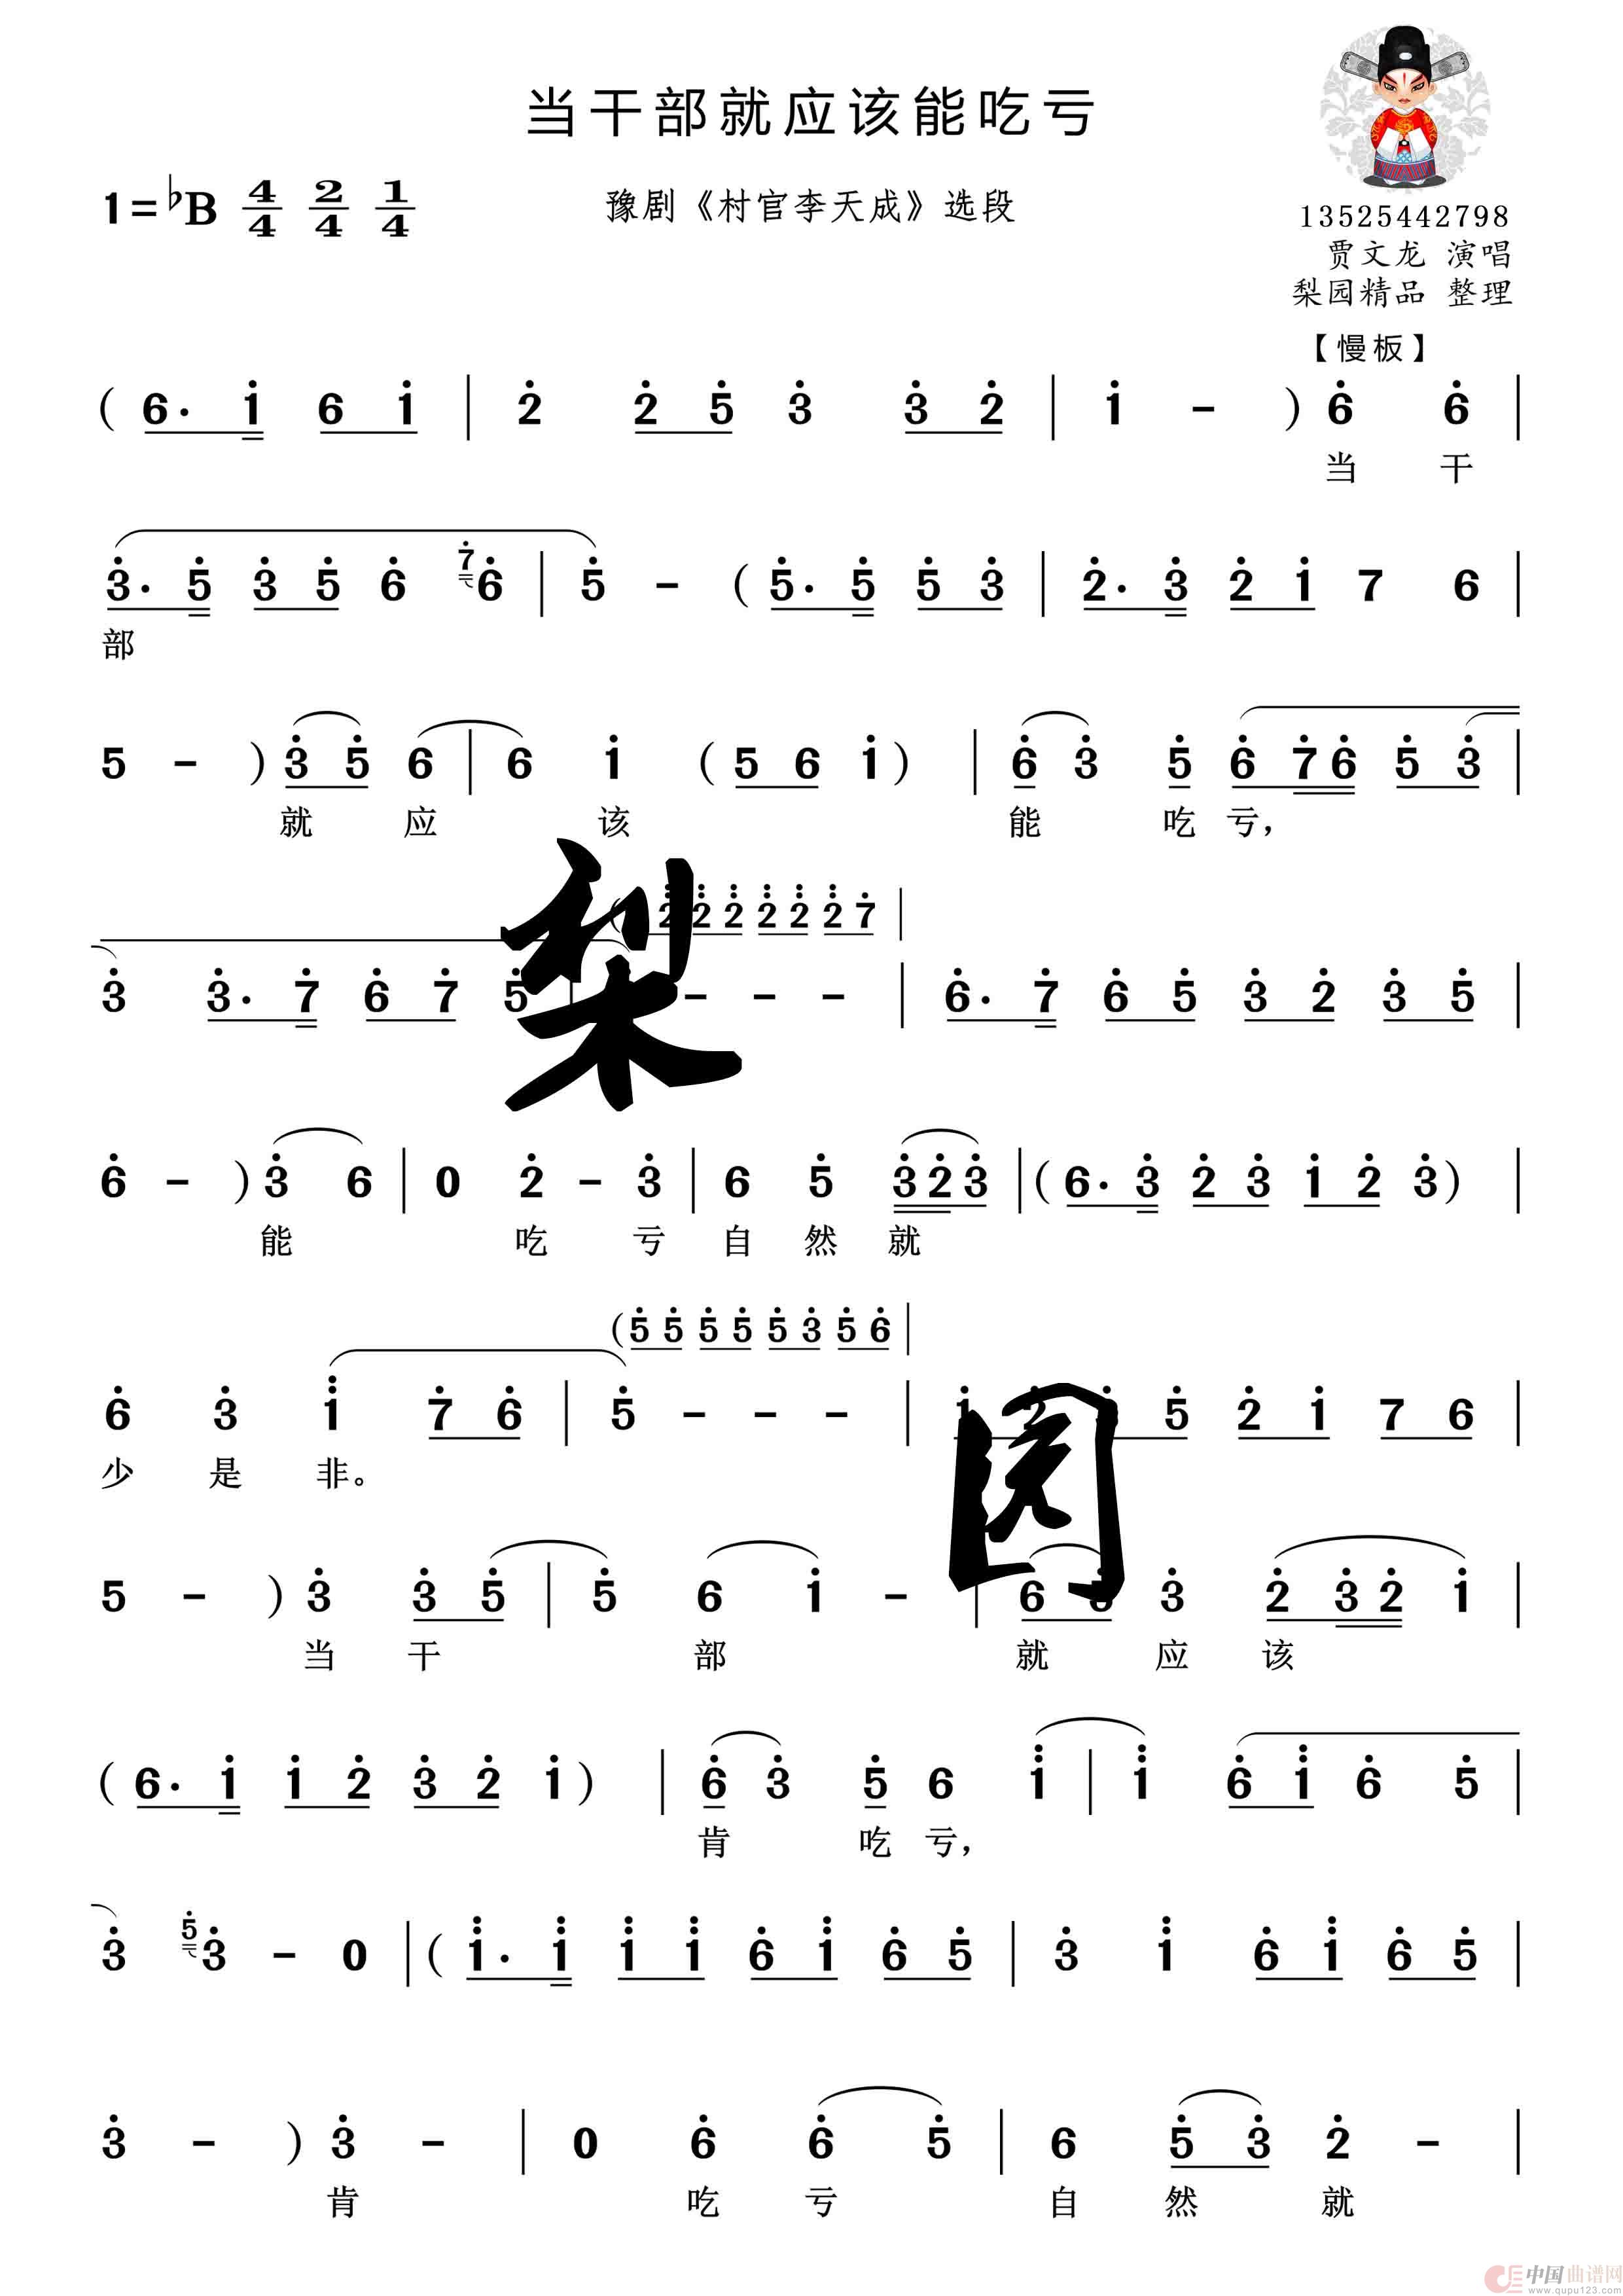 当干部就应该能吃亏
1=♭B 4/4 2/4 1/4
豫剧《村官李天成》选段
13525442798
贾文龙 演唱
梨园精品 整理
【慢板】
( 6· i 6 i | 2 2 5 3 3 2 | i - ) 6 6 |
当 干
3· 5 3 5 6 7 6 | 5 - ( 5· 5 5 3 | 2· 3 2 i 7 6 |
部
5 - ) 3 5 6 | 6 i ( 5 6 i ) | 6 3 5 6 7 6 5 3 |
就 应 该 能 吃 亏,
2 2 2 2 2 2 7 |
3 3· 7 6 7 5 | - - - | 6· 7 6 5 3 2 3 5 |
梨
6 - ) 3 6 | 0 2 - 3 | 6 5 3 2 3 | ( 6· 3 2 3 i 2 3 ) |
能 吃 亏 自 然 就
( 5 5 5 5 5 3 5 6 |
6 3 i 7 6 | 5 - - - | 1 2 5 2 i 7 6 |
少 是 非。
园
5 - ) 3 3 5 | 5 6 i - | 6 5 3 2 3 2 i |
当 干 部 就 应 该
( 6· i i 2 3 2 i ) | 6 3 5 6 i | i 6 i 6 5 |
肯 吃 亏,
3 5 3 - 0 | ( i· i i i 6 i 6 5 | 3 i 6 i 6 5 |
3 - ) 3 - | 0 6 6 5 | 6 5 3 2 - |
肯 吃 亏 自 然 就
中国曲谱网
www.qupu123.com